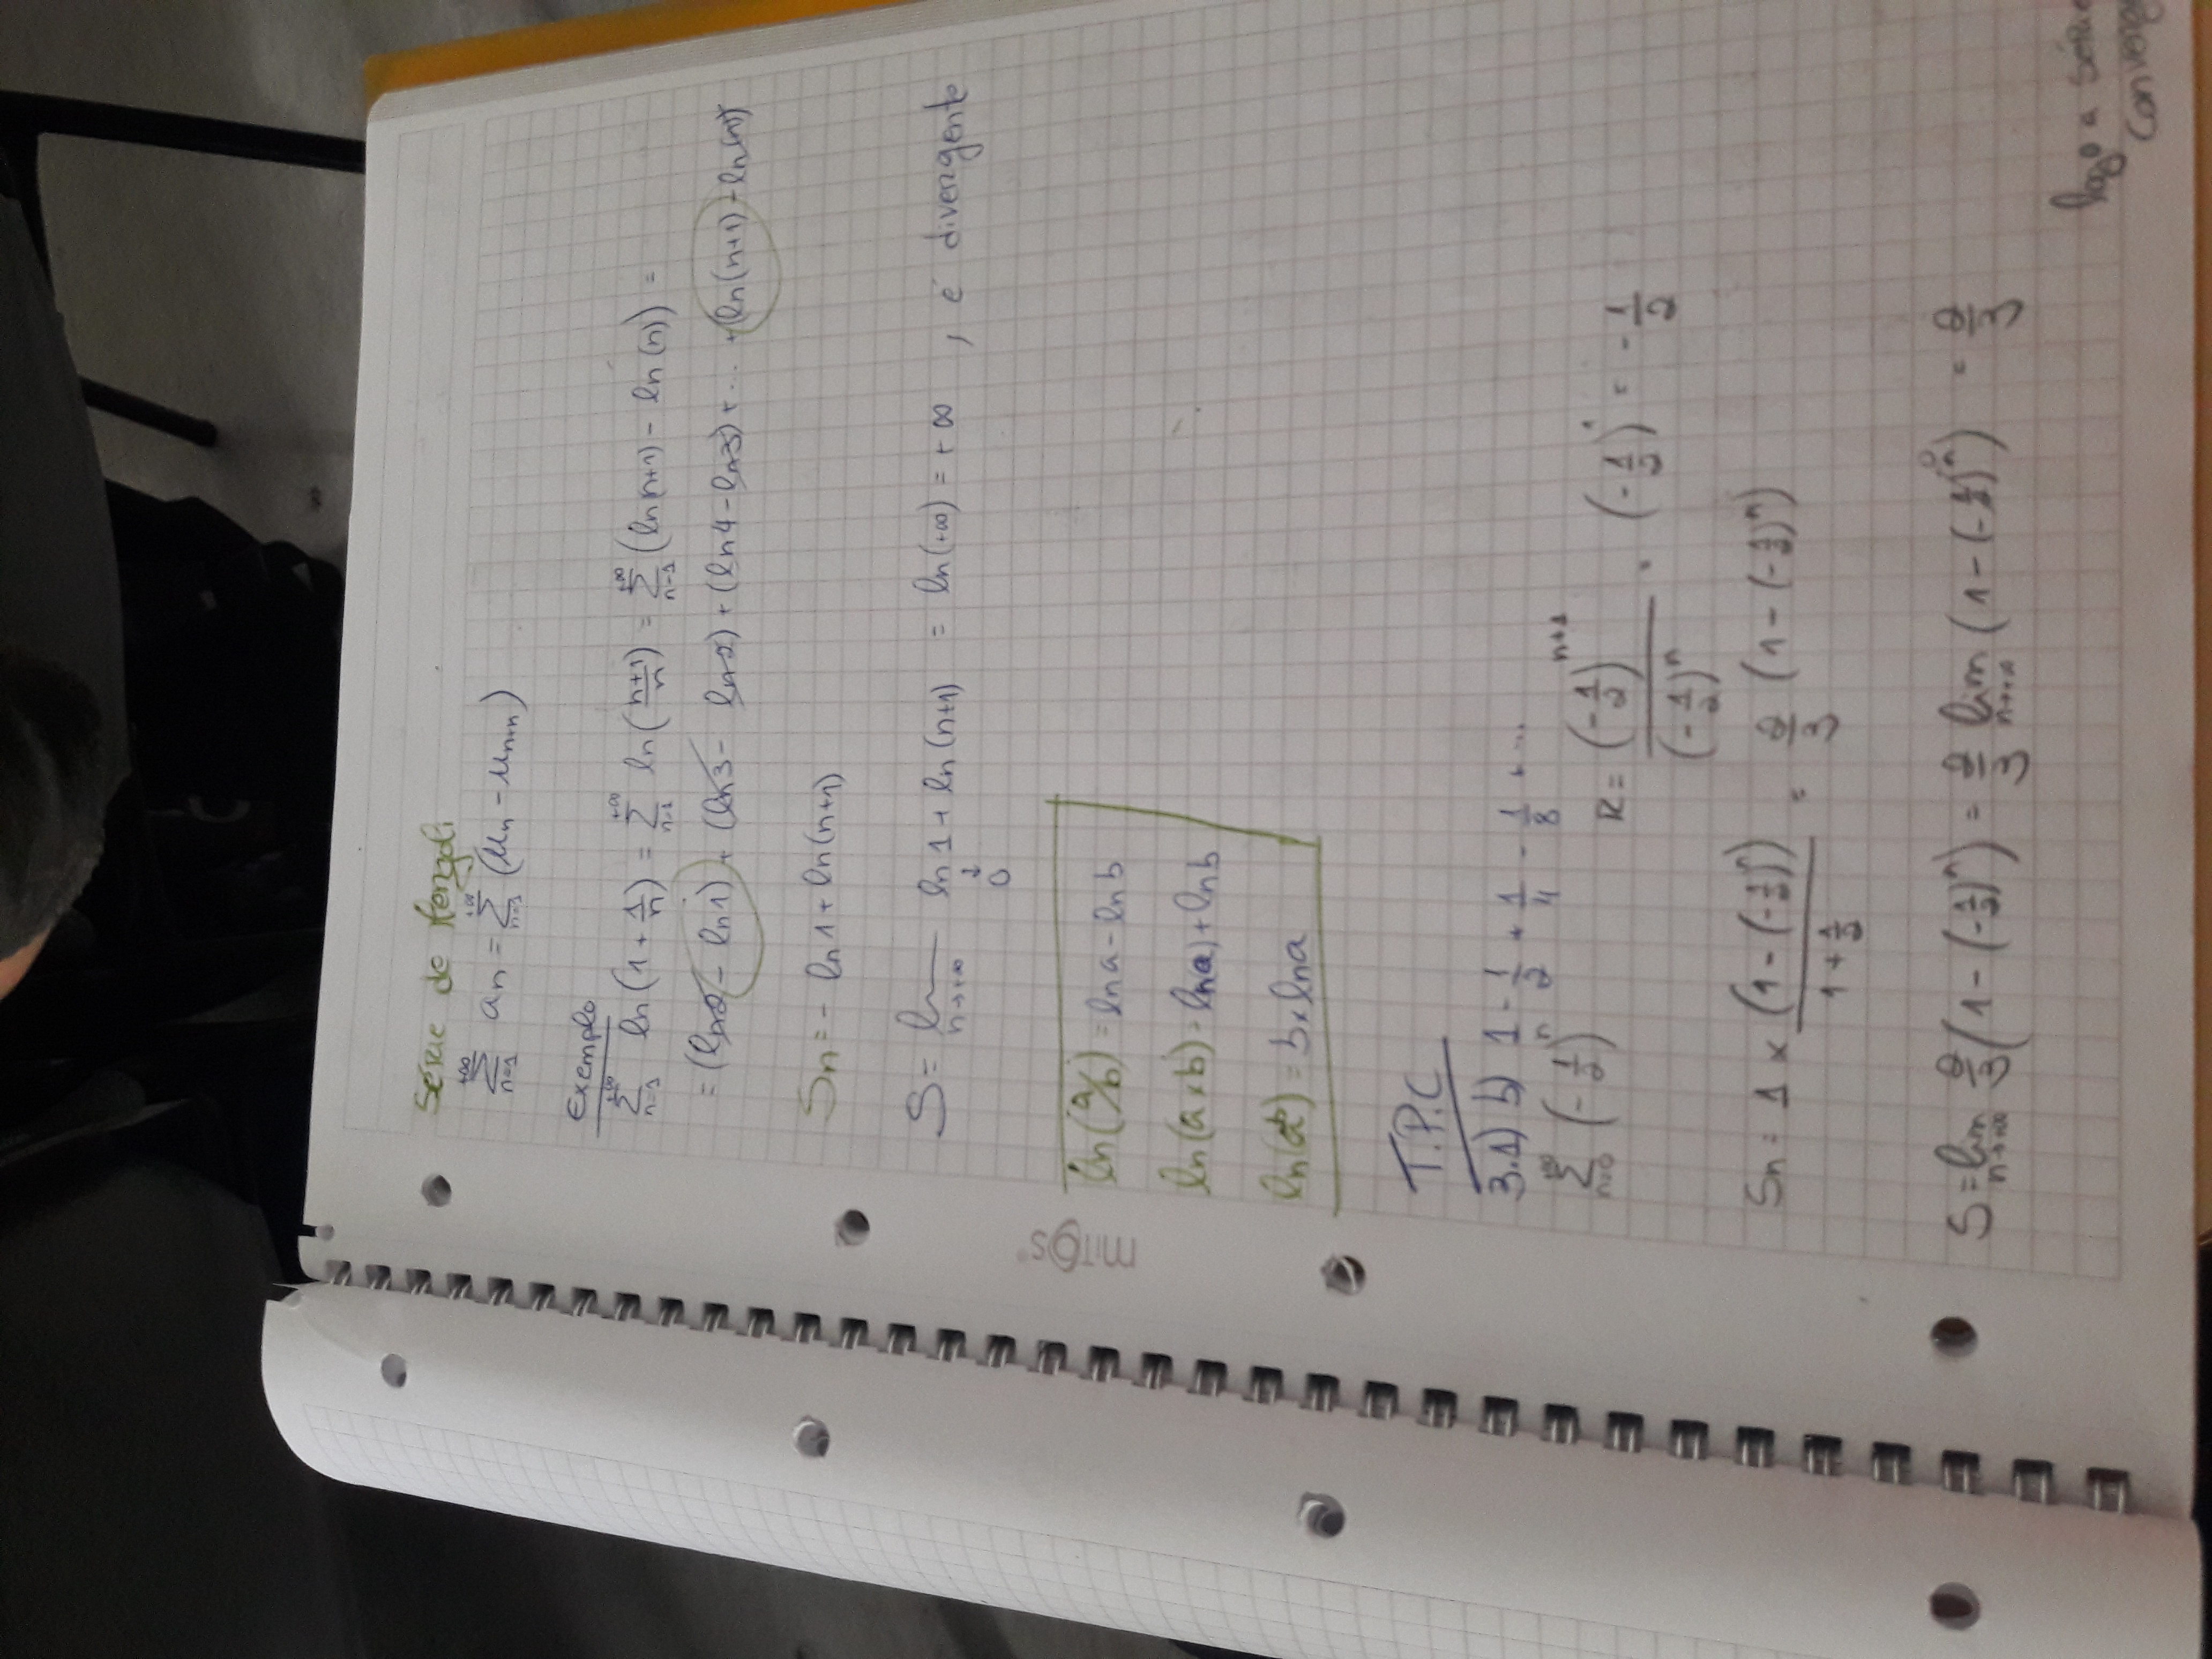 Série de Mengoli
+∞ Σ n=1 an = +∞ Σ n=1 (un - un+n)
Exemplo
+∞ Σ n=1 ln(1 + 1/n) = +∞ Σ n=1 ln((n+1)/n) = +∞ Σ n=1 (ln(n+1) - ln(n)) =
= (ln2 - ln1) + (ln3 - ln2) + (ln4 - ln3) + ... + (ln(n+1) - ln(n))
Sn = - ln1 + ln(n+1)
S = lim n→+∞ ln1 + ln(n+1) = ln(+∞) = +∞ , é divergente
↓
0
mitos
ln(a/b) = lna - lnb
ln(a×b) = ln(a) + lnb
ln(a^b) = b×lna
T.P.C
3.1) b) 1 - 1/2 + 1/4 - 1/8 + ...
∞ Σ n=0 (-1/2)^n
R = (-1/2)^(n+1) / (-1/2)^n = (-1/2)^1 = -1/2
Sn = 1 × (1-(-1/2)^n) / (1+1/2) = 2/3 (1-(-1/2)^n)
S = lim n→+∞ 2/3 (1-(-1/2)^n) = 2/3 lim n→+∞ (1-(-1/2)^n) 0 = 2/3
logo a série
converg